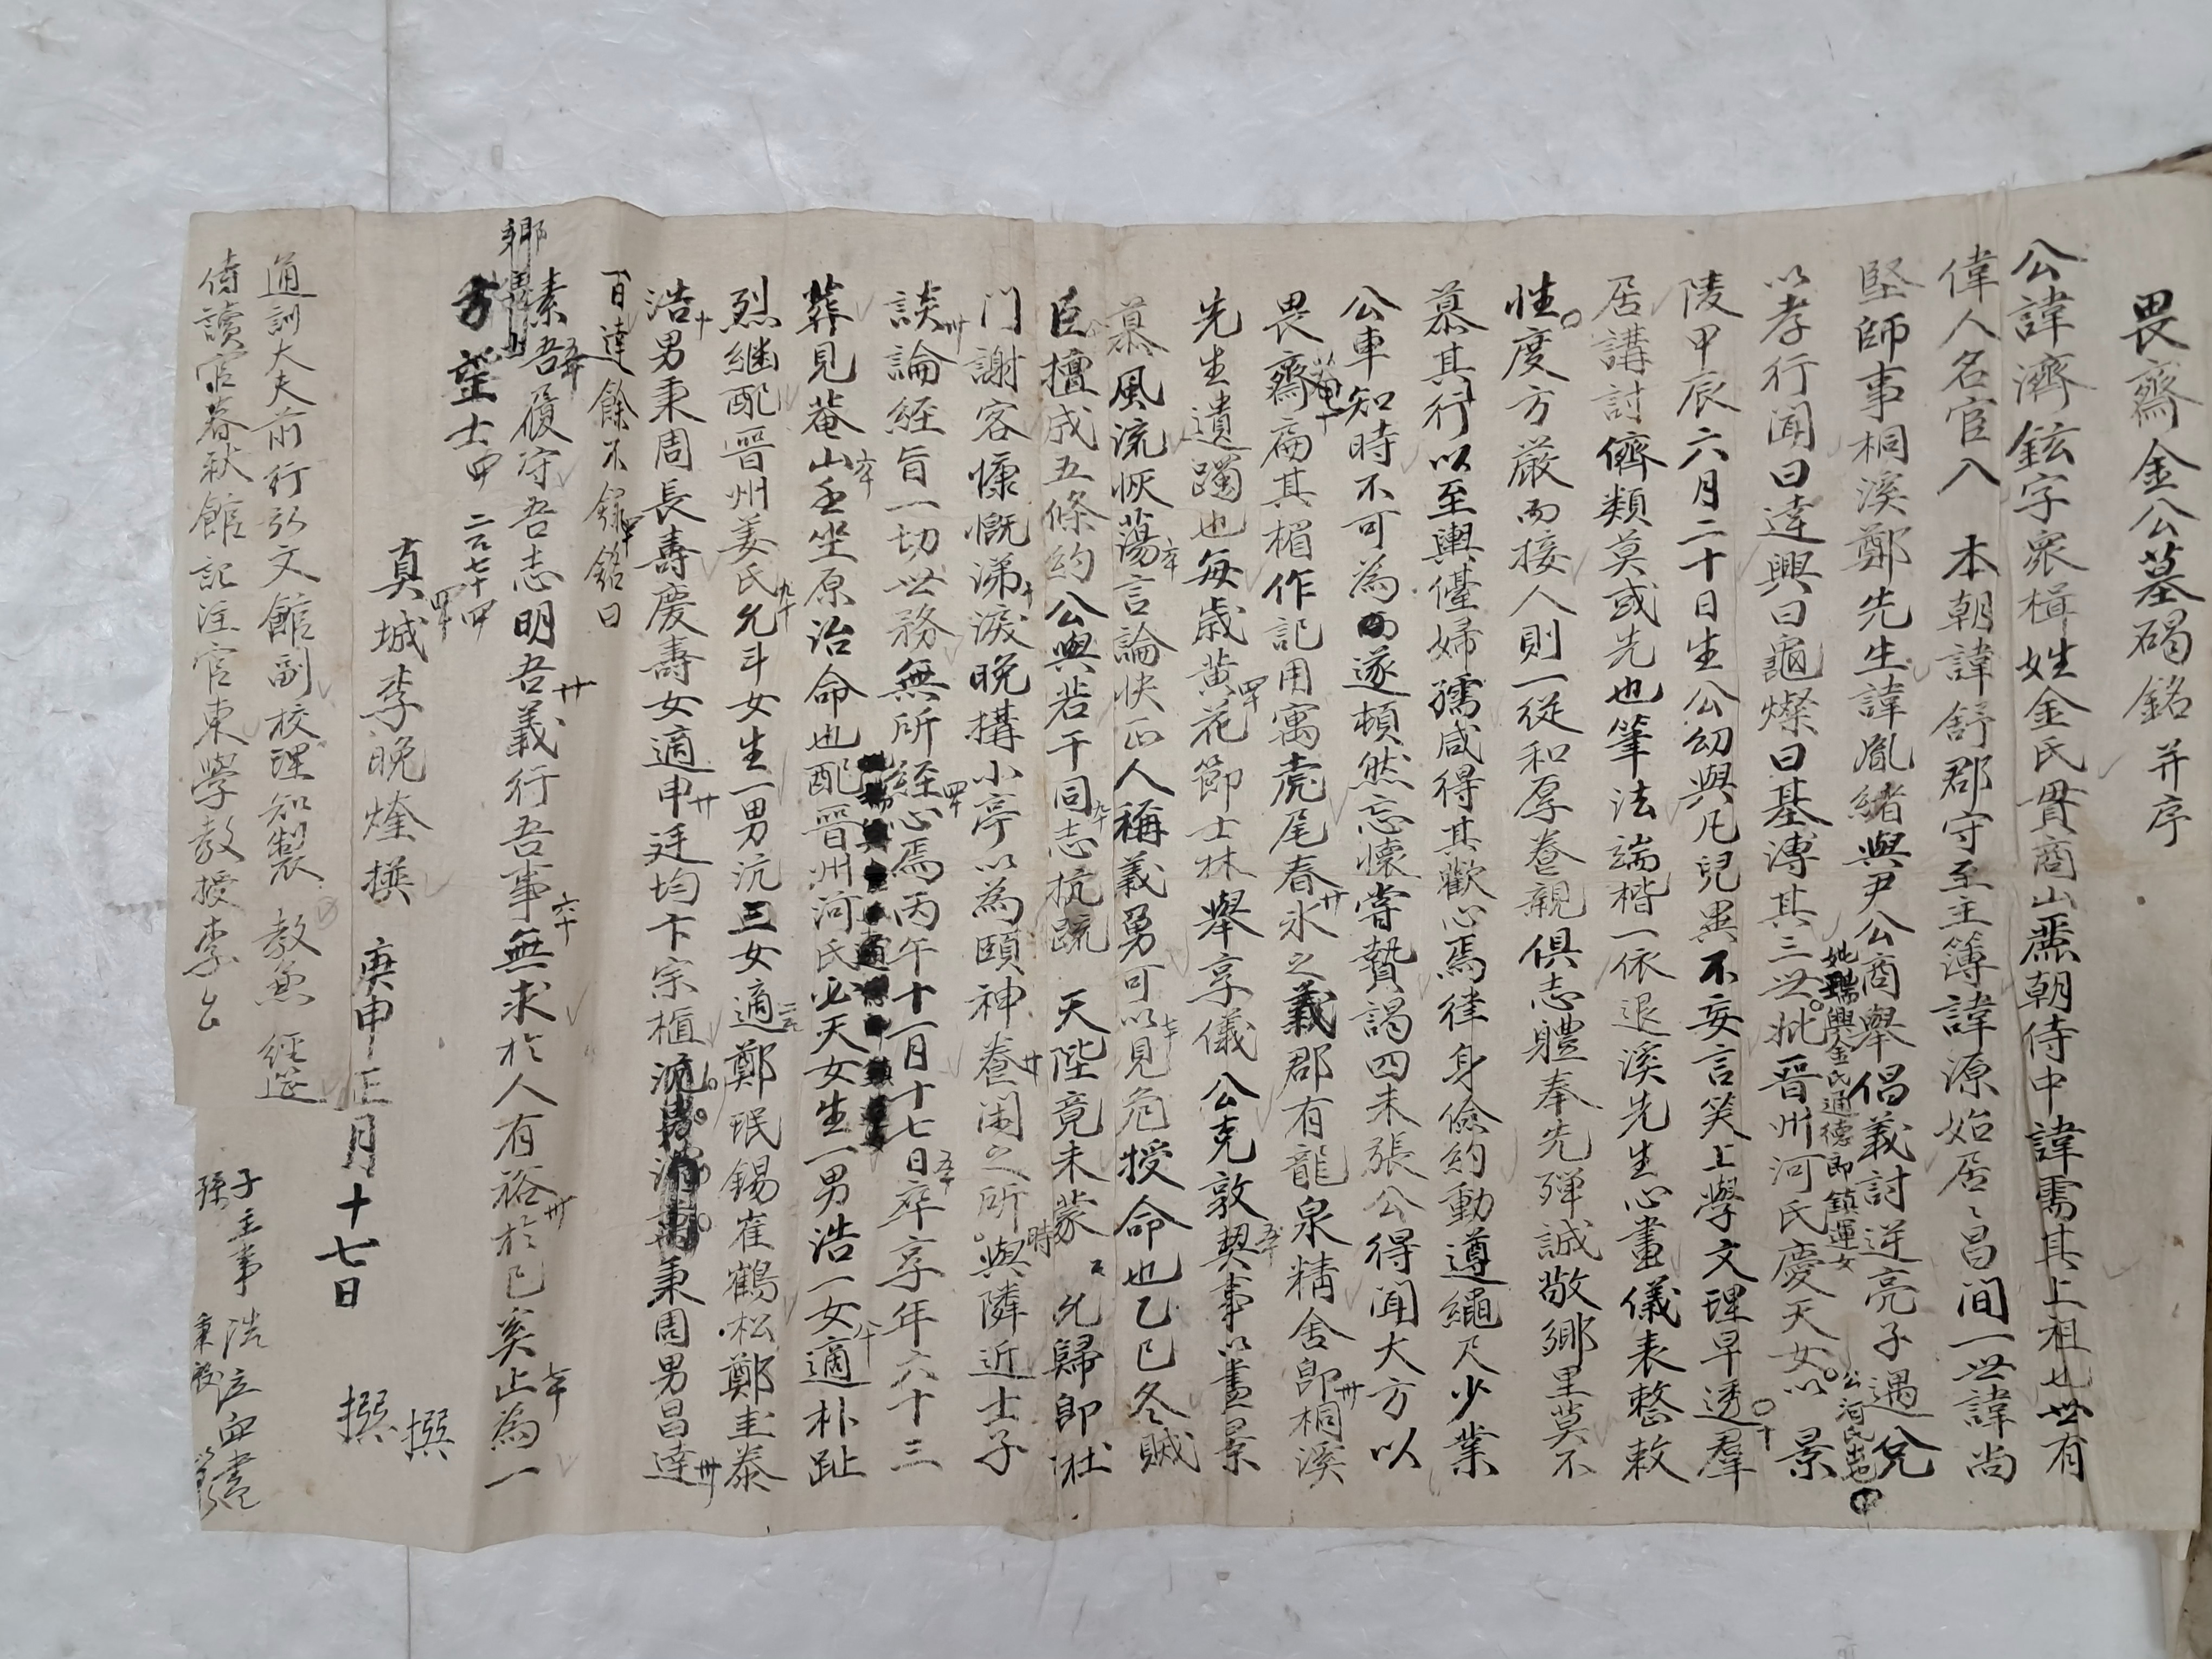 畏齋金公墓碣銘 并序
公諱濟鉉字衆楫姓金氏貫商山麗朝侍中諱需其上祖也世有
偉人名官入 本朝諱舒郡守至主簿諱源始居居昌間一世諱尚
堅師事桐溪鄭先生諱胤緒與尹公商舉倡義討逆亮子遇兌
妣瑞興金氏通德郞鎮運女
公河氏出也
以孝行聞曰達興曰龜燦曰基溥其三世妣晋州河氏慶天女以 景
陵甲辰六月二十日生公幼與凡兒異不妄言笑上學文理早透羣
居講討儕類莫或先也筆法端楷一依退溪先生心畫儀表整敕
性度方嚴而接人則一從和厚養親俱志體奉先殫誠敬鄉里莫不
慕其行以至輿儓婦孺咸得其歡心焉律身儉約動遵繩尺少業
公車知時不可為遂頓然忘懷嘗贄謁四未張公得聞大方以
畏齋扁其楣作記用寓虎尾春氷之義郡有龍泉精舍卽桐溪
先生遺躅也每歲黃花節士林舉享儀公克敦契事以盡景
慕風流恢蕩言論快正人稱義勇可以見危授命也乙巳冬賊
臣擅成五條約公與若干同志抗疏 天陛竟未蒙 允歸卽杜
門謝客慷慨涕淚晚搆小亭以為頤神養閑之所時與隣近士子
談論經旨一切世務無所經心焉丙午十一月十七日卒享年六十三
葬見菴山壬坐原治命也配晋州河氏必天女生一男浩一女適朴趾
烈継配晋州姜氏允斗女生一男沆三女適鄭珉錫崔鶴松鄭圭泰
浩男秉周長壽慶壽女適申廷均卞宗植秉周男昌達
百達餘不錄銘曰
素吾履守吾志明吾義行吾事無求於人有裕於己奚止為一
鄉
望士
真城李晚煃撰 庚申正月十七日
撰 撰
通訓大夫前行弘文館副校理知製 教兼 經筵
侍讀官春秋館記注官東學教授李
子主事浩泣血書
孫秉